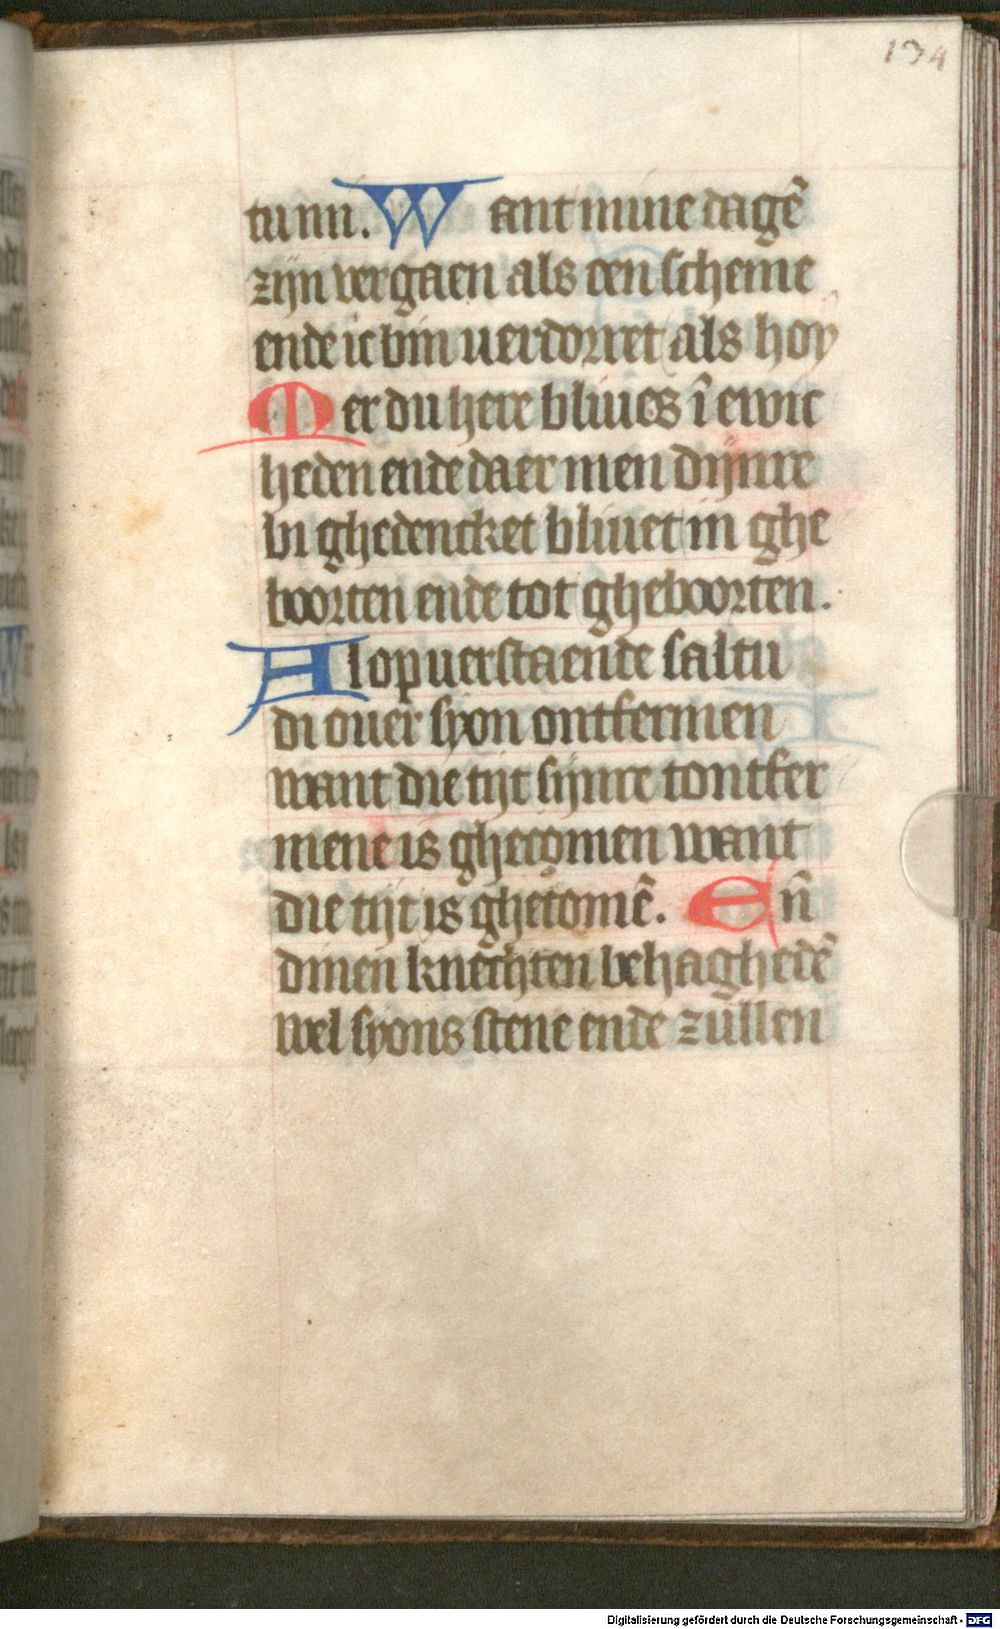 134
tu mi. Want mine dagē
zijn vergaen als den scheme
ende ic bin verdorret als hoy
Mer du here bliues ī ewic
heden ende daer men dijnre
bi ghedencket bliuet in ghe
boorten ende tot gheboorten.
Al op uerstaende saltu
di ouer syon ontfermen
want die tijt sijnre tontfer
mene is ghecomen want
die tijt is ghecomē. Eñ
dinen knechten behaghedē
wel syons stene ende zullen
Digitalisierung gefördert durch die Deutsche Forschungsgemeinschaft - DFG